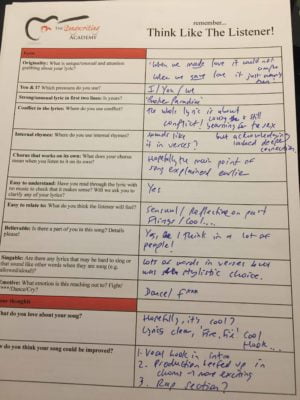 The Songwriting
ACADEMY
remember...
Think Like The Listener!
Lyric
Originality: What is unique/unusual and attention
grabbing about your lyric?
'When we made love it could not
When we love it just
You & I? Which pronouns do you use?
I / You / we
Strong/unusual lyric in first two lines: Is yours?
Paradise'
Conflict in the lyrics: Where do you use conflict?
The whole lyric is about
conflict / yearning for the sex
Internal rhymes: Where do you use internal rhymes?
Sounds like
it in verses?
but acknowledging
deeper
connection
Chorus that works on its own: What does your chorus
mean when you listen to it on its own?
Hopefully the main point of
song explained earlier
Easy to understand: Have you read through the lyric with
no music to check that it makes sense? Will we ask you to
clarify any of your lyrics?
Yes
Easy to relate to: What do you think the listener will feel?
Sensual / Reflective on past
flings / cool...
Believable: Is there a part of you in this song? Details
please!
Yes, I think in a lot of
people!
Singable: Are there any lyrics that may be hard to sing or
that sound like other words when they are sung (e.g.
allowed/aloud)?
Lots of words in verses but
was stylistic choice.
Emotive: What emotion is this reaching out to? Fight/
F***/Dance/Cry?
Dance / F***
Your thoughts
What do you love about your song?
Hopefully, it's cool?
Lyrics clear, 'Fire, Fix' cool
Hook...
How do you think your song could be improved?
1. Vocal hook in intro
2. Production beefed up in
chorus → more exciting
3. Rap section?